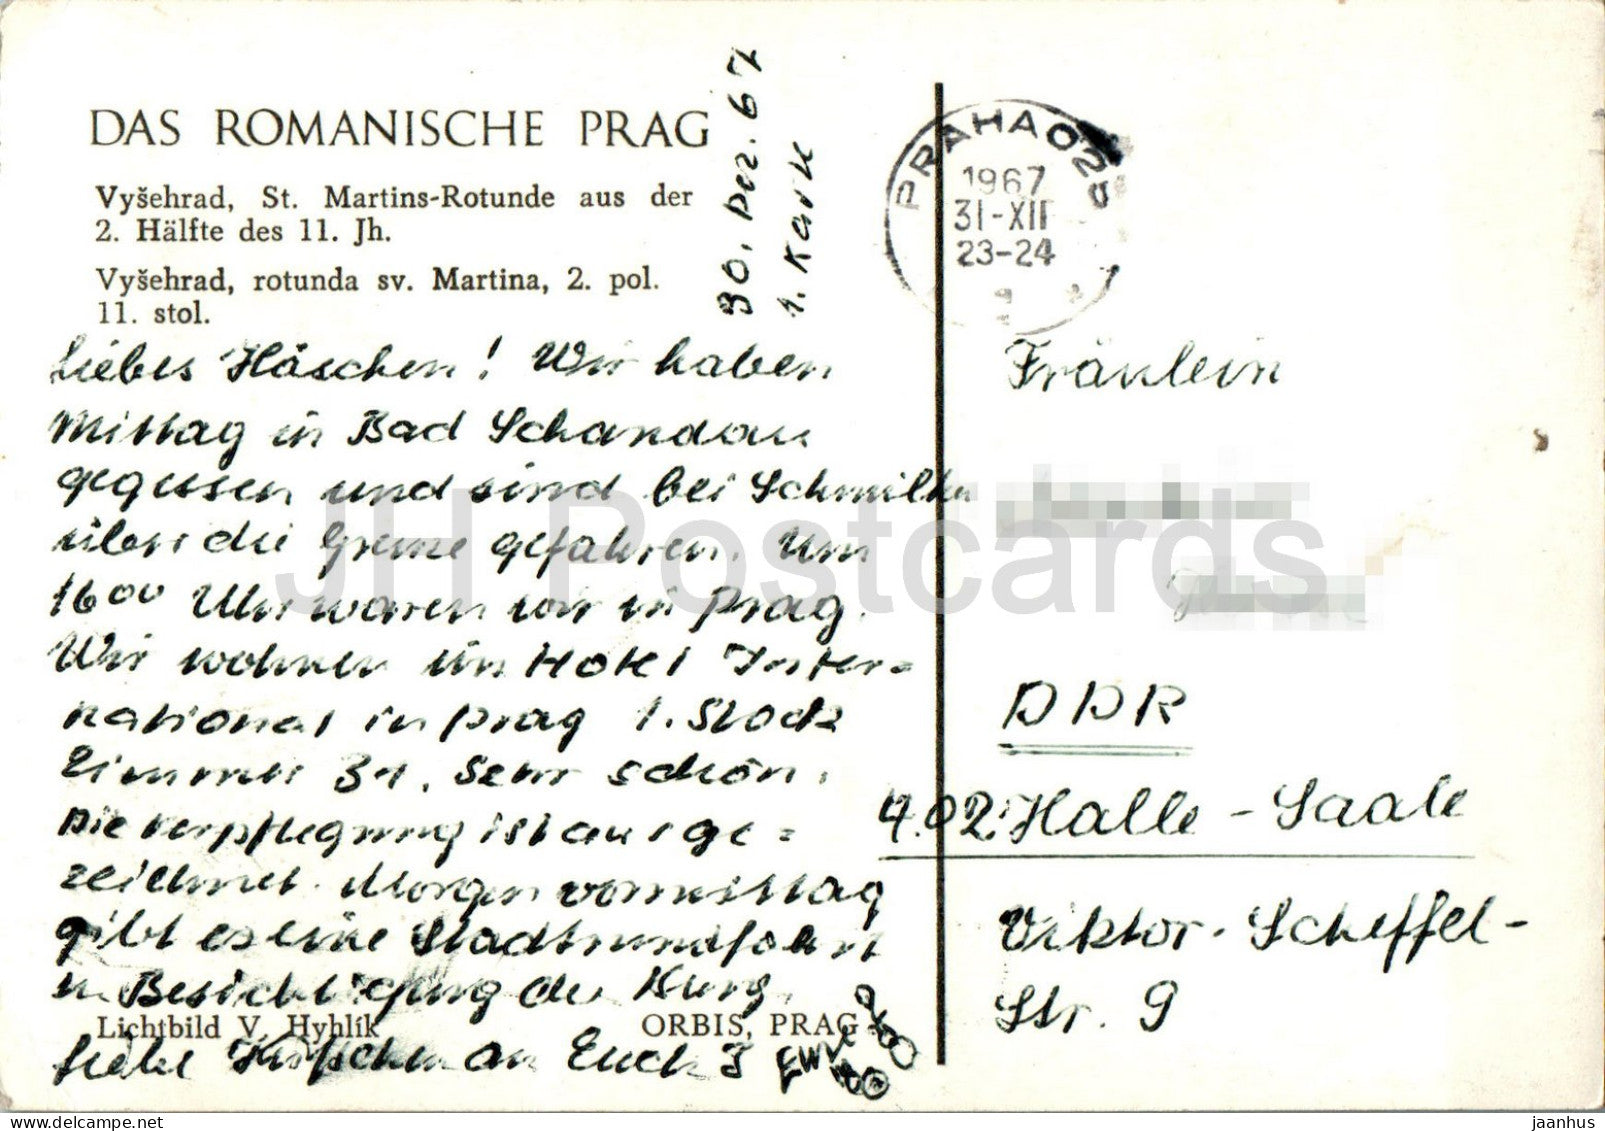 DAS ROMANISCHE PRAG
Vyšehrad, St. Martins-Rotunde aus der
2. Hälfte des 11. Jh.
Vyšehrad, rotunda sv. Martina, 2. pol.
11. stol.
30. Dez. 67
1. Karte
Liebes Häschen! Wir haben
Mittag in Bad Schandau
gegessen und sind bei Schmilka
über die Grenze gefahren. Um
16 00 Uhr waren wir in Prag.
Wir wohnen im Hotel Inter=
national in Prag 1. Stock
Zimmer 31. Sehr schön.
Die Verpflegung ist ausge=
zeichnet. Morgen vormittag
gibt es eine Stadtrundfahrt
u. Besichtigung der Burg.
Lichtbild V. Hyhlík
ORBIS, PRAG
Liebe Küßchen an Euch 3
PRAHA 025
1967
31-XII
23-24
1
Fräulein
DDR
402 Halle-Saale
Viktor-Scheffel-
Str. 9
JH Postcards
delcampe.net
jaanhus